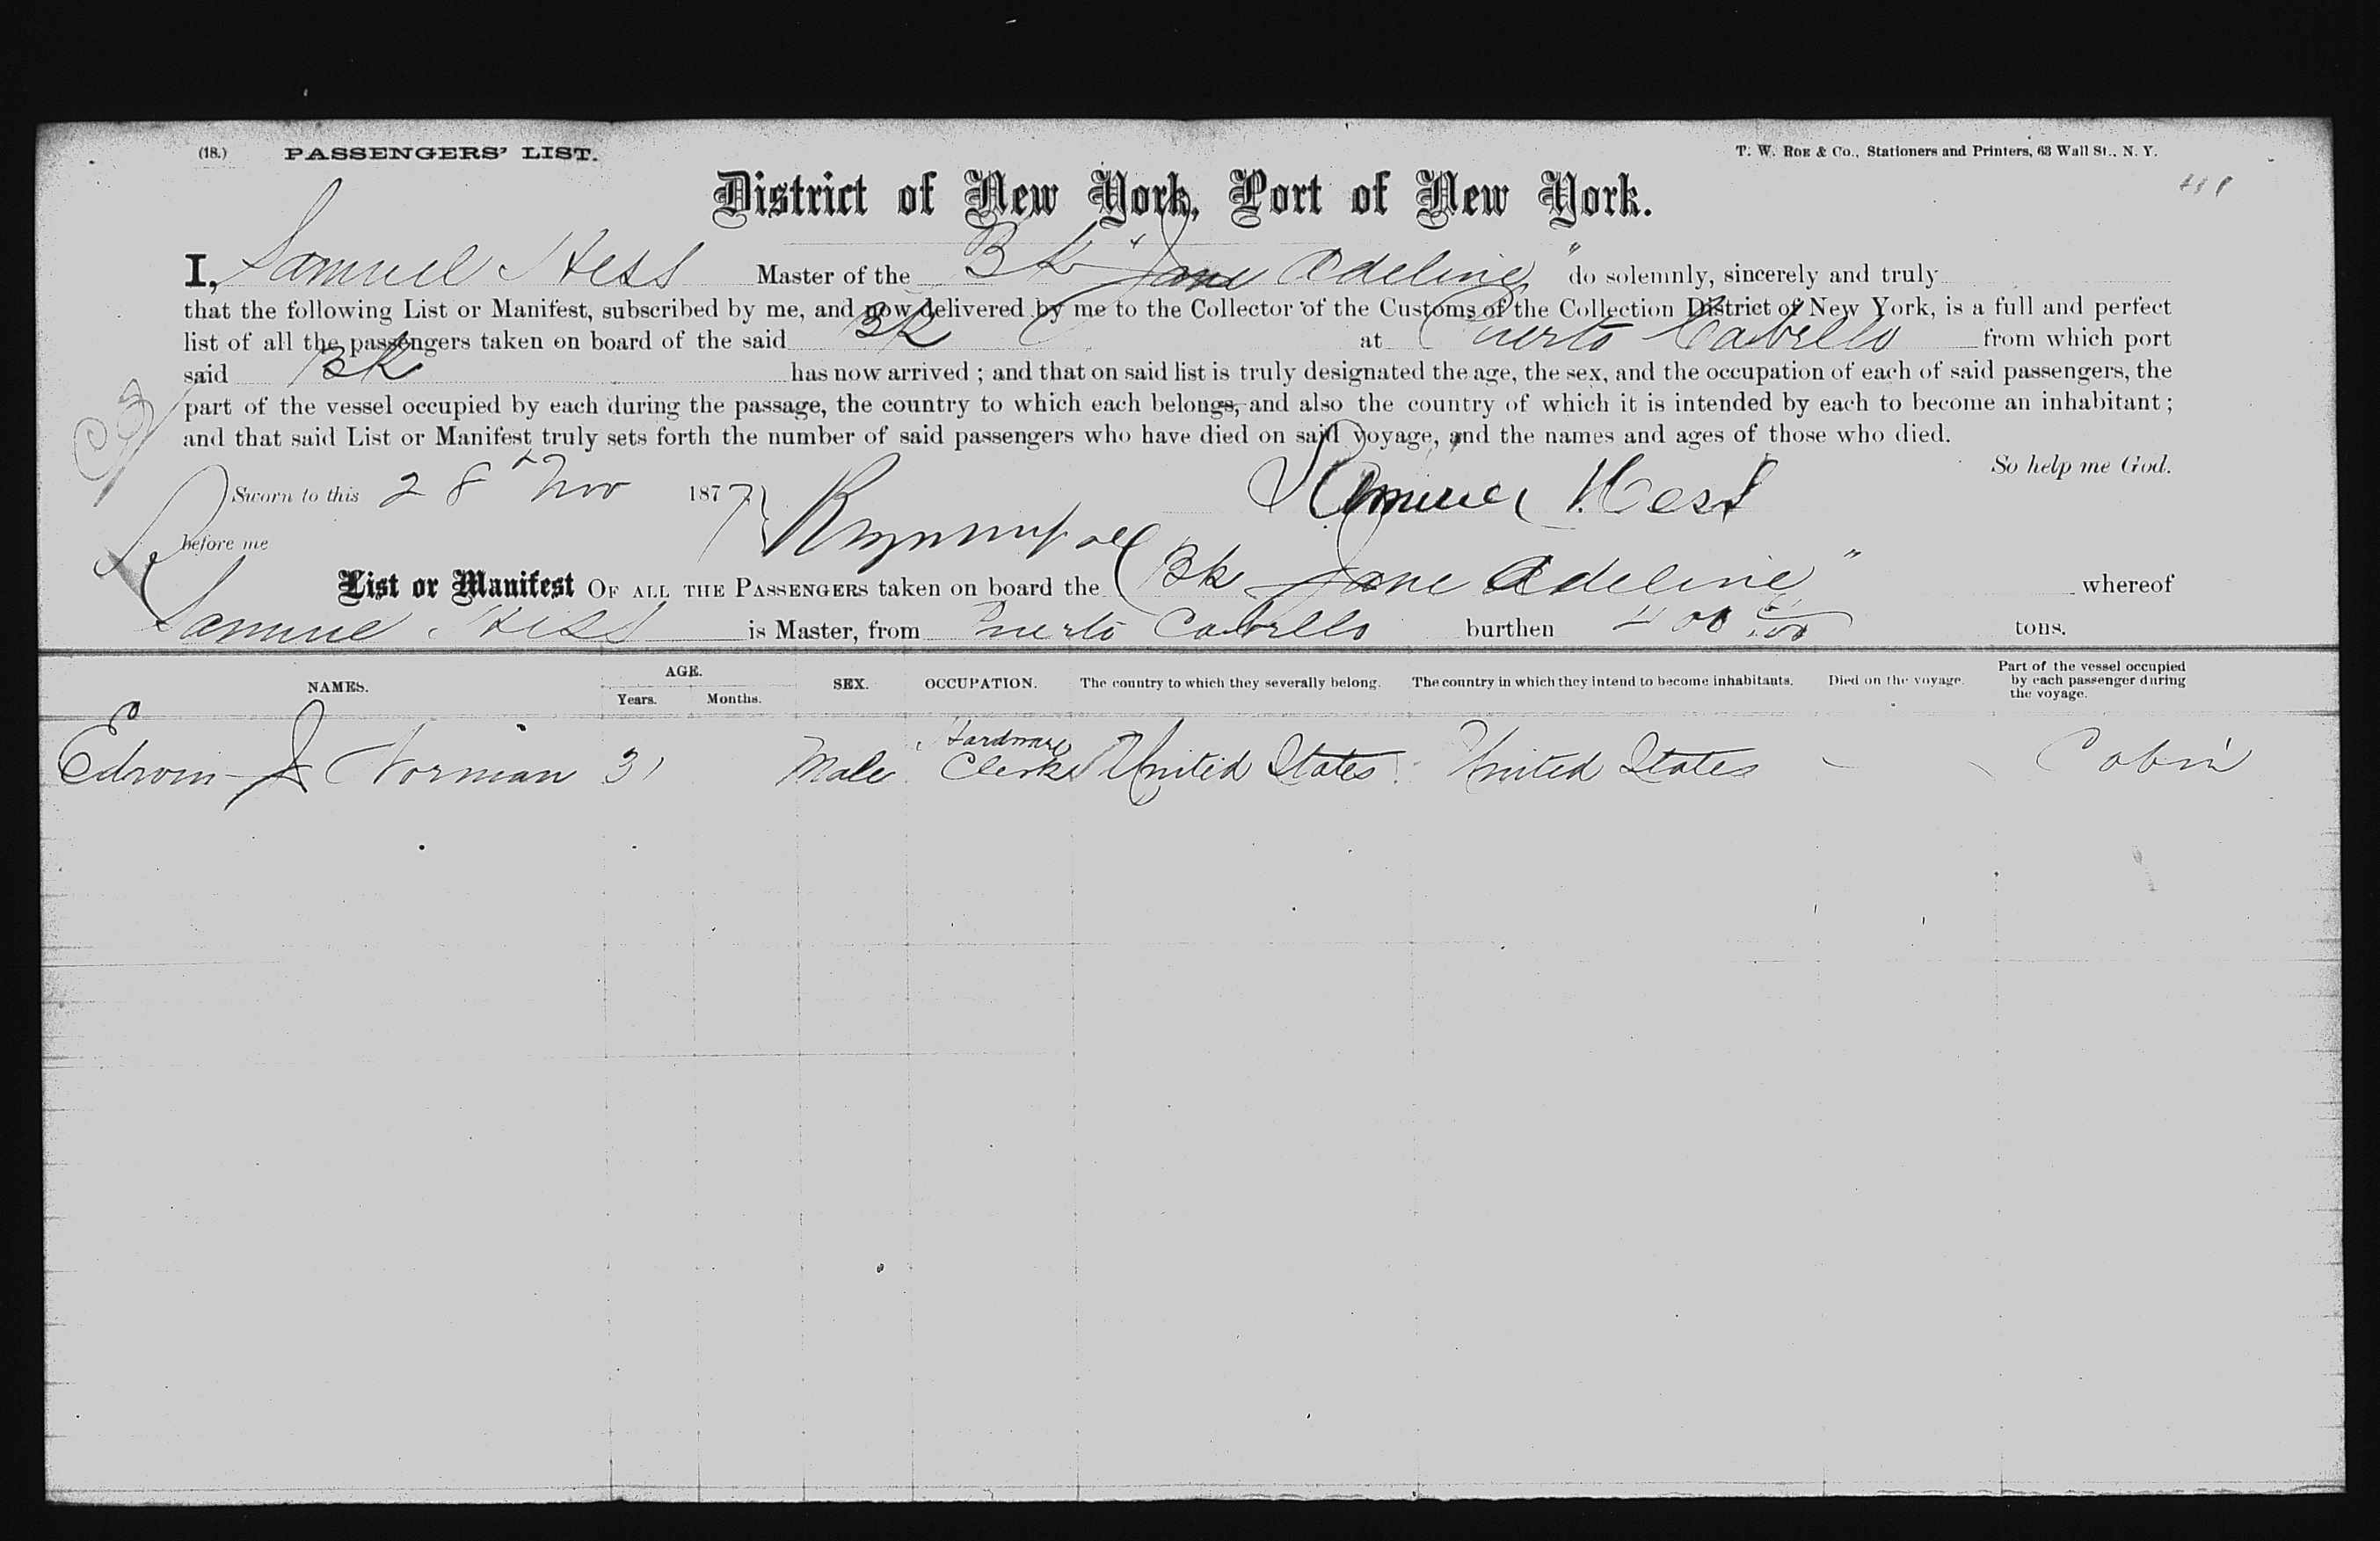 (18.) PASSENGERS' LIST. T. W. ROE & Co., Stationers and Printers, 63 Wall St., N. Y.
District of New York, Port of New York.
I, Samuel Hess Master of the Bk "Jane Adeline" do solemnly, sincerely and truly
that the following List or Manifest, subscribed by me, and now delivered by me to the Collector of the Customs of the Collection District of New York, is a full and perfect
list of all the passengers taken on board of the said Bk at Puerto Cabello from which port
said Bk has now arrived ; and that on said list is truly designated the age, the sex, and the occupation of each of said passengers, the
part of the vessel occupied by each during the passage, the country to which each belongs, and also the country of which it is intended by each to become an inhabitant ;
and that said List or Manifest truly sets forth the number of said passengers who have died on said voyage, and the names and ages of those who died.
So help me God.
Sworn to this 28 Nov 1877 Samuel Hess
before me
List or Manifest OF ALL THE PASSENGERS taken on board the Bk Jane Adeline" whereof
Samuel Hess is Master, from Puerto Cabello burthen 400 tons.
NAMES. AGE. Years. Months. SEX. OCCUPATION. The country to which they severally belong. The country in which they intend to become inhabitants. Died on the voyage. Part of the vessel occupied by each passenger during the voyage.
Edwin J Norman 31 Male Hardware Clerk United States United States Cabin